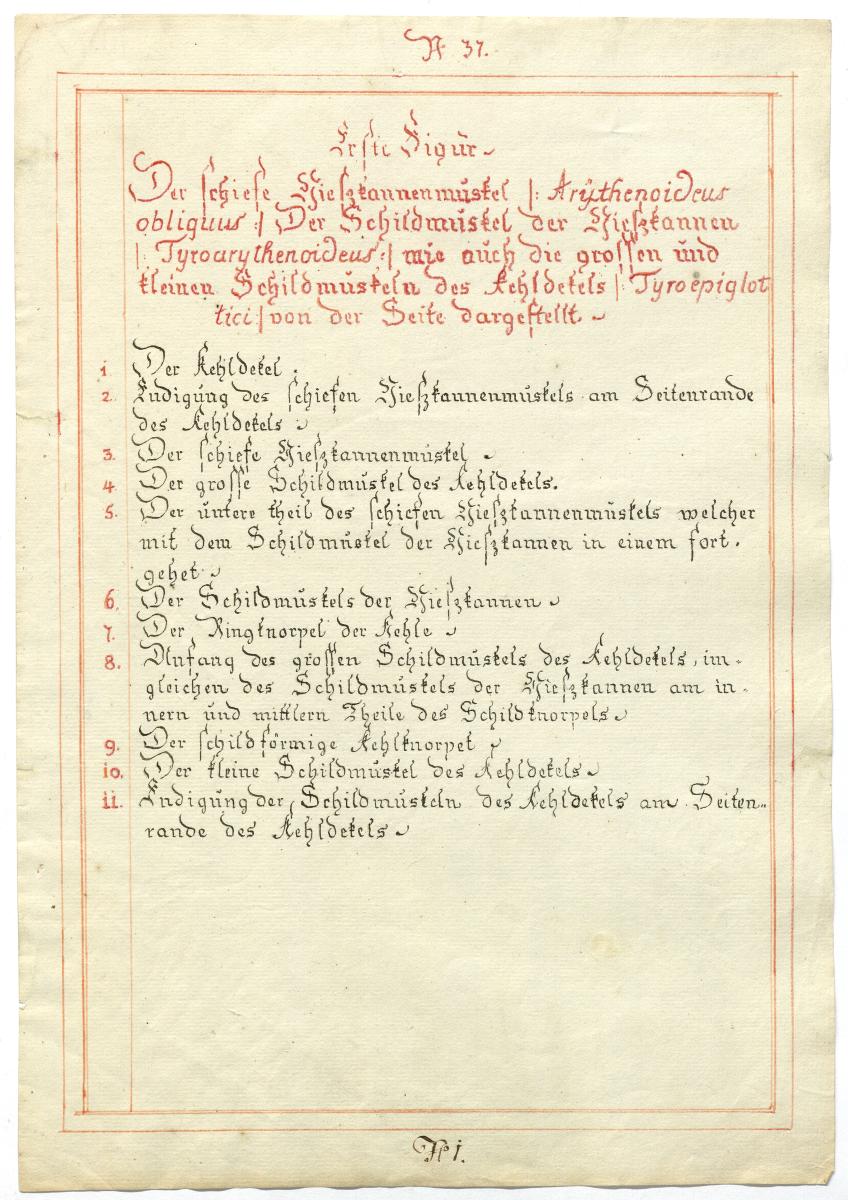 No 37.
Erste Figur
Der schiefe Gieszkannenmuskel |: Arythenoideus
obliguus :| Der Schildmuskel der Gieszkannen
|: Tyroarythenoideus :| wie auch die grossen und
kleinen Schildmuskeln des Kehldekels |: Tyroepiglot
tici :| von der Seite dargestellt.
1. Der Kehldekel.
2. Endigung des schiefen Gieszkannenmuskels am Seitenrande
des Kehldekels
3. Der schiefe Gieszkannenmuskel
4. Der grosse Schildmuskel des Kehldekels.
5. Der untere theil des schiefen Gieszkannenmuskels welcher
mit dem Schildmuskel der Gieszkannen in einem fort-
gehet
6. Der Schildmuskels der Gieszkannen
7. Der Ringknorpel der Kehle
8. Anfang des grossen Schildmuskels des Kehldekels, im-
gleichen des Schildmuskels der Gieszkannen am in-
nern und mittlern Theile des Schildknorpels
9. Der schildförmige Kehlknorpel
10. Der kleine Schildmuskel des Kehldekels
11. Endigung der Schildmuskeln des Kehldekels am Seiten-
rande des Kehldekels
No 1.